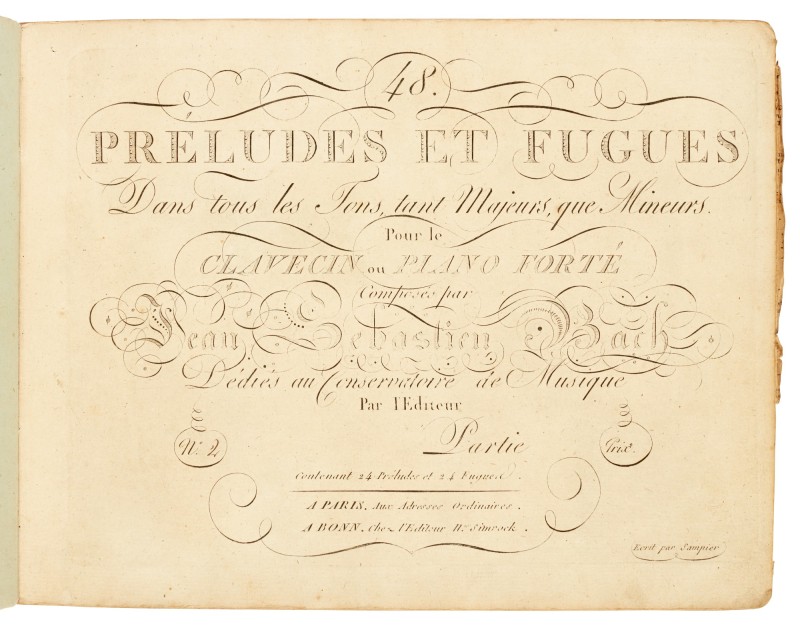 48.
PRÉLUDES ET FUGUES
Dans tous les Tons, tant Majeurs, que Mineurs.
Pour le
CLAVECIN ou PIANO FORTÉ
Composés par
Jean Sebastien Bach
Dédiés au Conservatoire de Musique
Par l'Editeur
Partie
N.º 2
Prix
Contenant 24 Préludes et 24 Fugues.
A PARIS, Aux Adresses Ordinaires.
A BONN, Chez l'Editeur N. Simrock.
Ecrit par Sampier